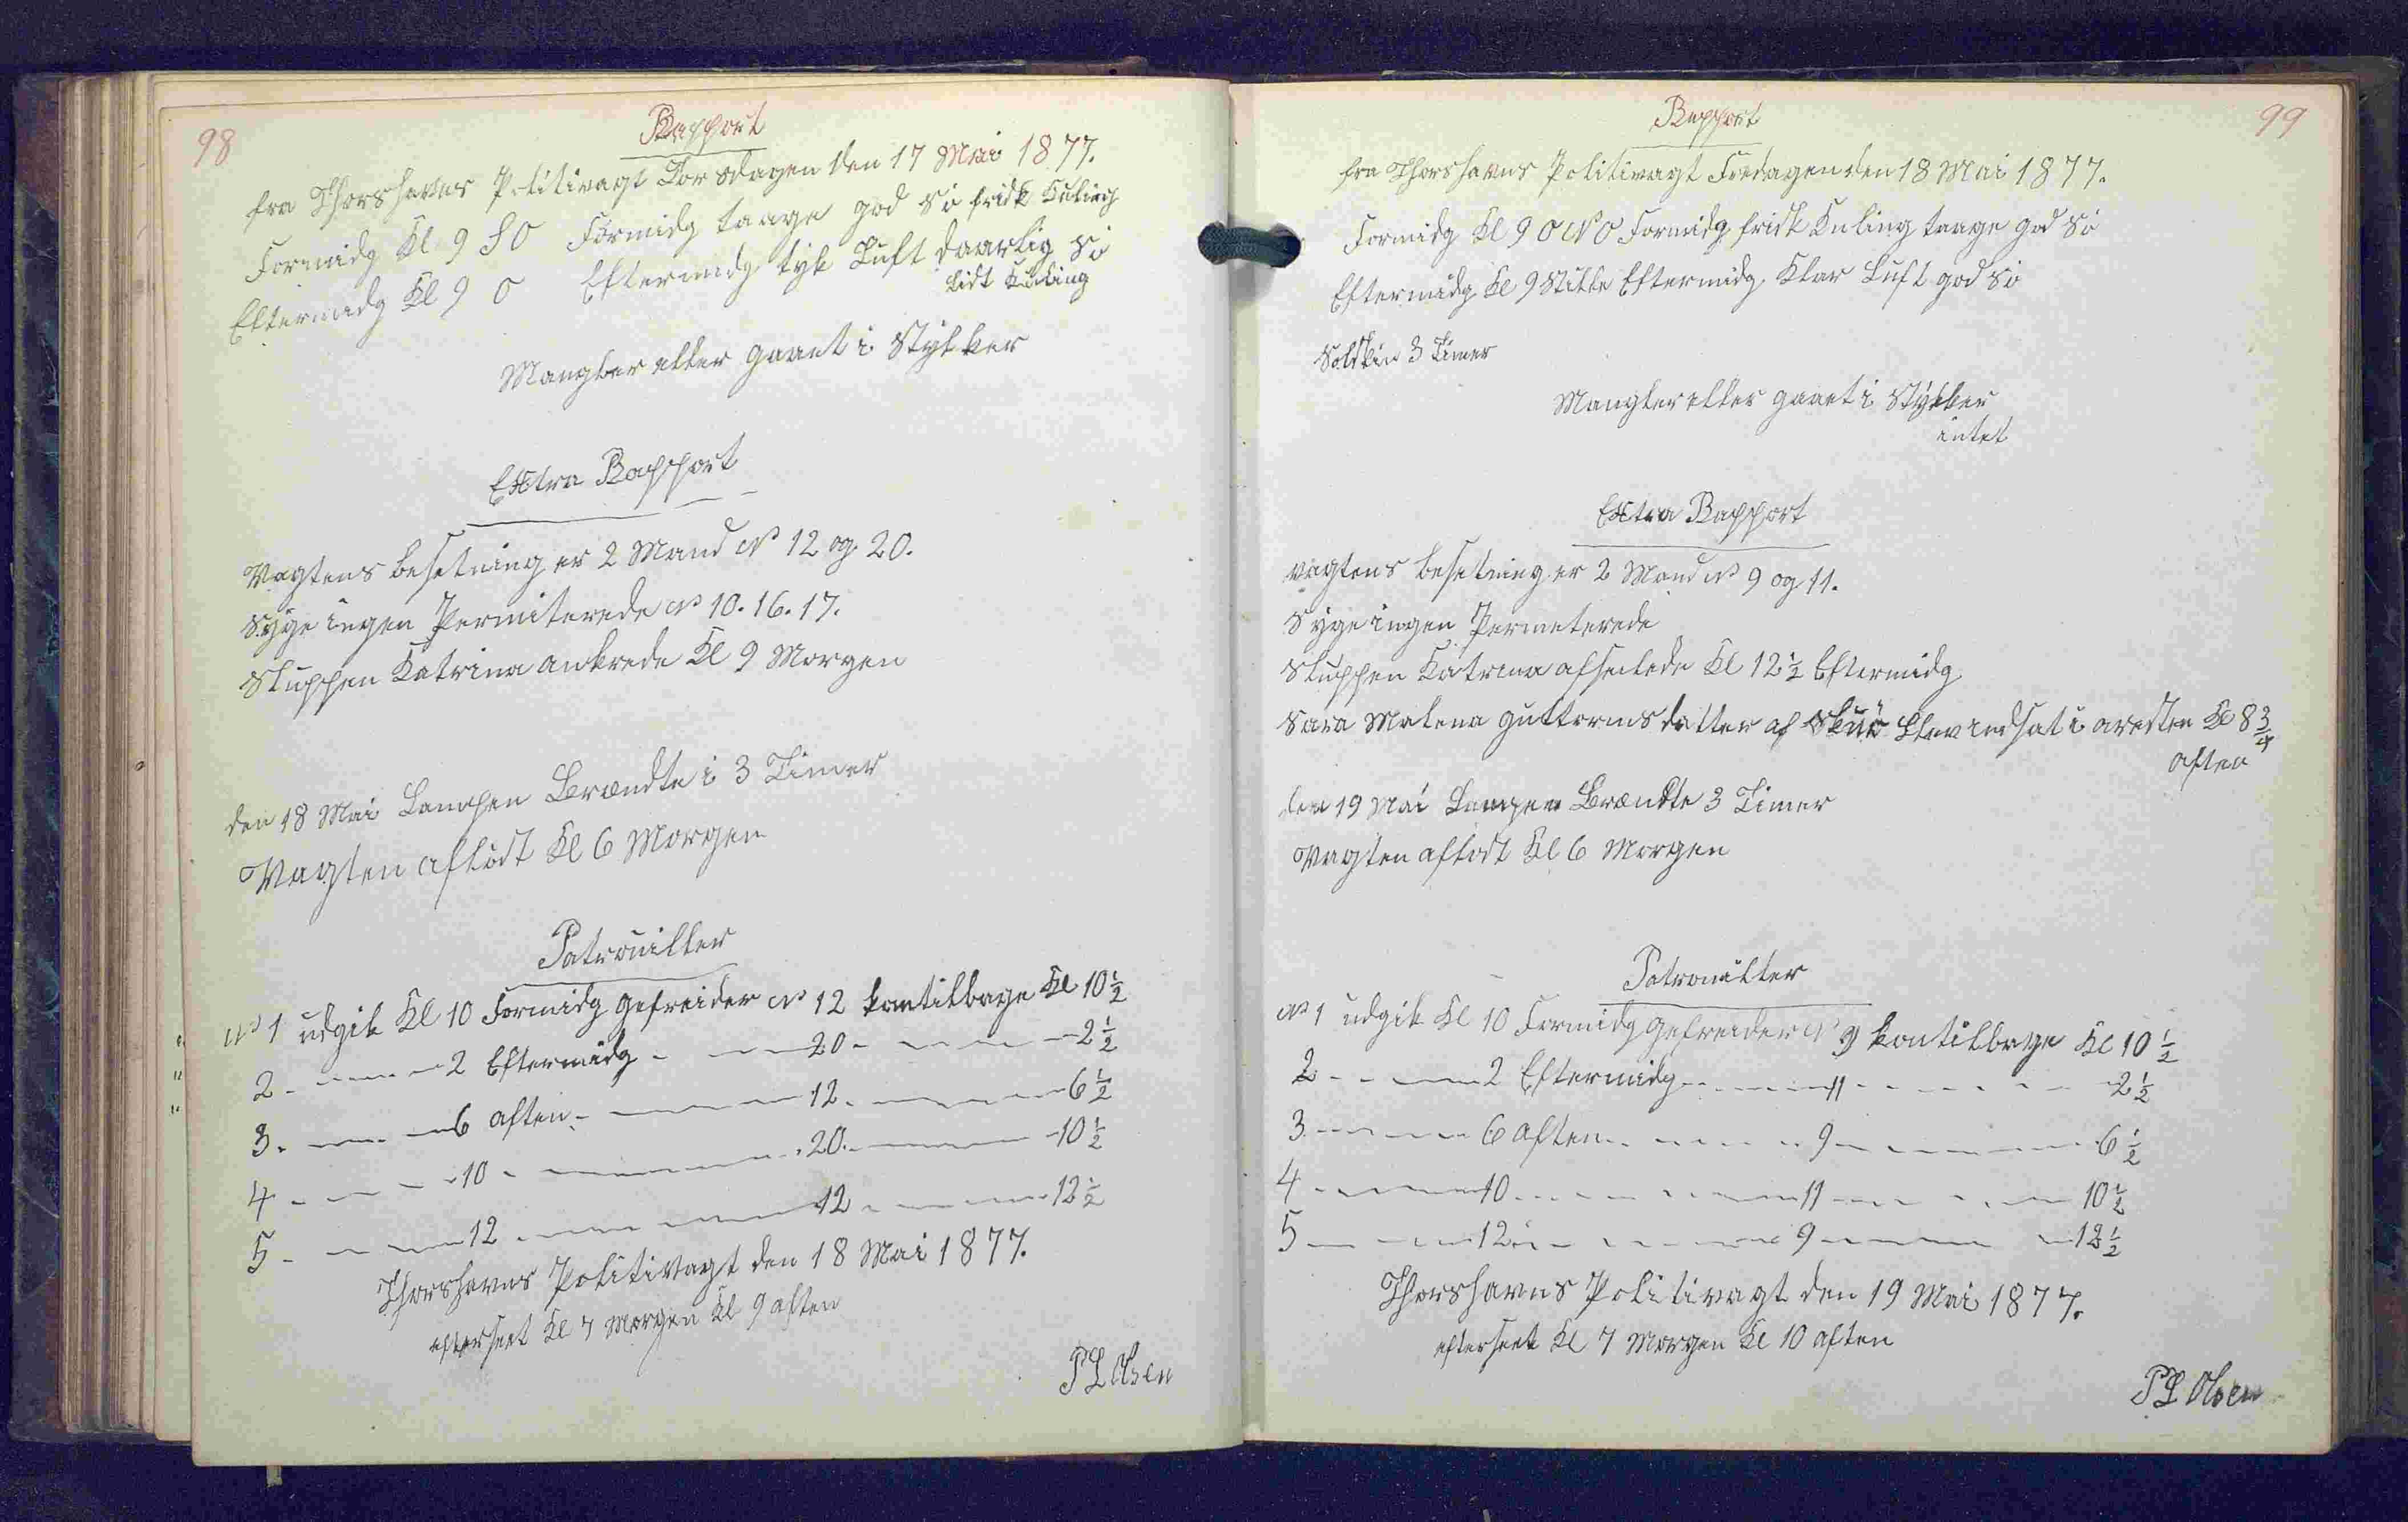 98
Rapport
fra Thorshavns Politivagt Torsdagen den 17 Mai 1877.
Formidg Kl 9 SO Formidg taage god Sö frisk Kuling
Eftermidg Kl 9 O Eftermidg tyk Luft daarlig Sö
lidt Kuling
Mangler eller gaaet i Stykker
Extra Rapport
Vagtens besetning er 2 Mand No 12 og 20.
Syge ingen Permiterede No 10. 16. 17.
Sluppen Katrina ankrede Kl 9 Morgen
den 18 Mai Lampen Brændte i 3 Timer
Vagten aflöst Kl 6 Morgen
Patrouiller
No 1 udgik Kl 10 Formidg Gefreider No 12 kom tilbage Kl 10 1/2
2 - - - 2 Eftermidg - - - 20 - - - 2 1/2
3 - - - 6 aften - - - 12 - - - 6 1/2
4 - - - 10 - - - 20 - - - 10 1/2
5 - - - 12 - - - 12 - - - 12 1/2
Thorshavns Politivagt den 18 Mai 1877.
efterseet Kl 7 Morgen Kl 9 aften
P L Olsen
99
Rapport
fra Thorshavns Politivagt Fredagen den 18 Mai 1877.
Formidg Kl 9 O N O Formidg frisk Kuling taage god Sö
Eftermidg Kl 9 Stille Eftermidg Klar Luft god Sö
Solskin 3 Timer
Mangler eller gaaet i Stykker
intet
Extra Rapport
Vagtens besetning er 2 Mand No 9 og 11.
Syge ingen Permeterede
Sluppen Katrina afseilede Kl 12 1/2 Eftermidg
Sara Malena Guttormsdatter af Skuö blev indsat i aresten Kl 8 3/4
aften
den 19 Mai Lampen Brændte 3 Timer
Vagten aflöst Kl 6 Morgen
Patrouiller
No 1 udgik Kl 10 Formidg Gefreider No 9 kom tilbage Kl 10 1/2
2 - - - 2 Eftermidg - - - 11 - - - 2 1/2
3 - - - 6 aften - - - 9 - - - 6 1/2
4 - - - 10 - - - 11 - - - 10 1/2
5 - - - 12 - - - 9 - - - 12 1/2
Thorshavns Politivagt den 19 Mai 1877.
efterseet Kl 7 Morgen Kl 10 aften
P L Olsen